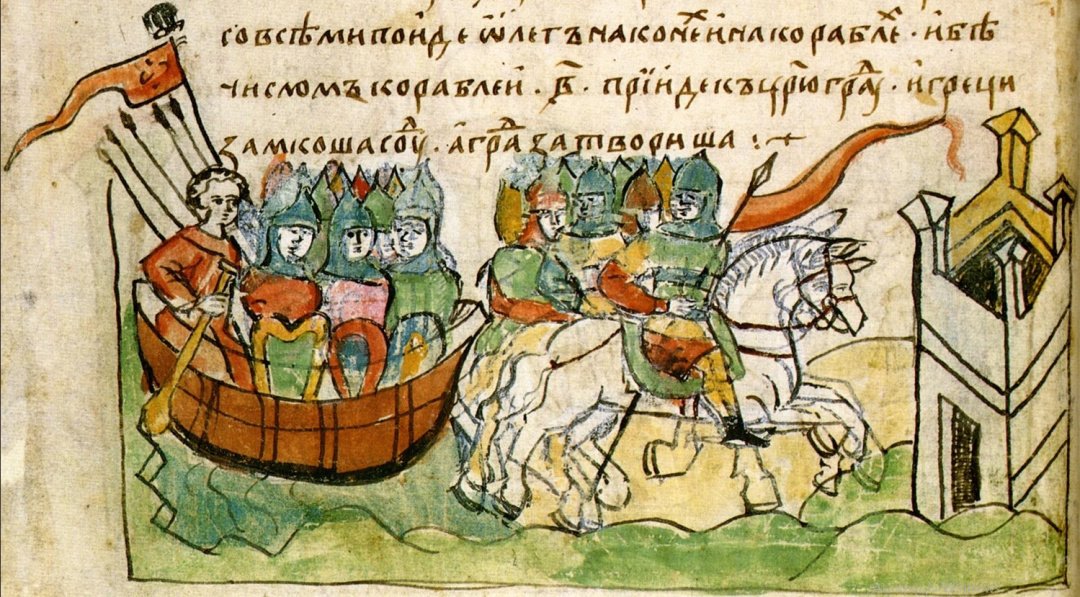 со всѣми поиде ѡлегъ на конеⷯ и на корабле · и бѣ
числомъ кораблеи · в҃ · прїиде къ цр҃югра҃ · и греци
замкоша соуⷣ · а граⷣ затвориша : +